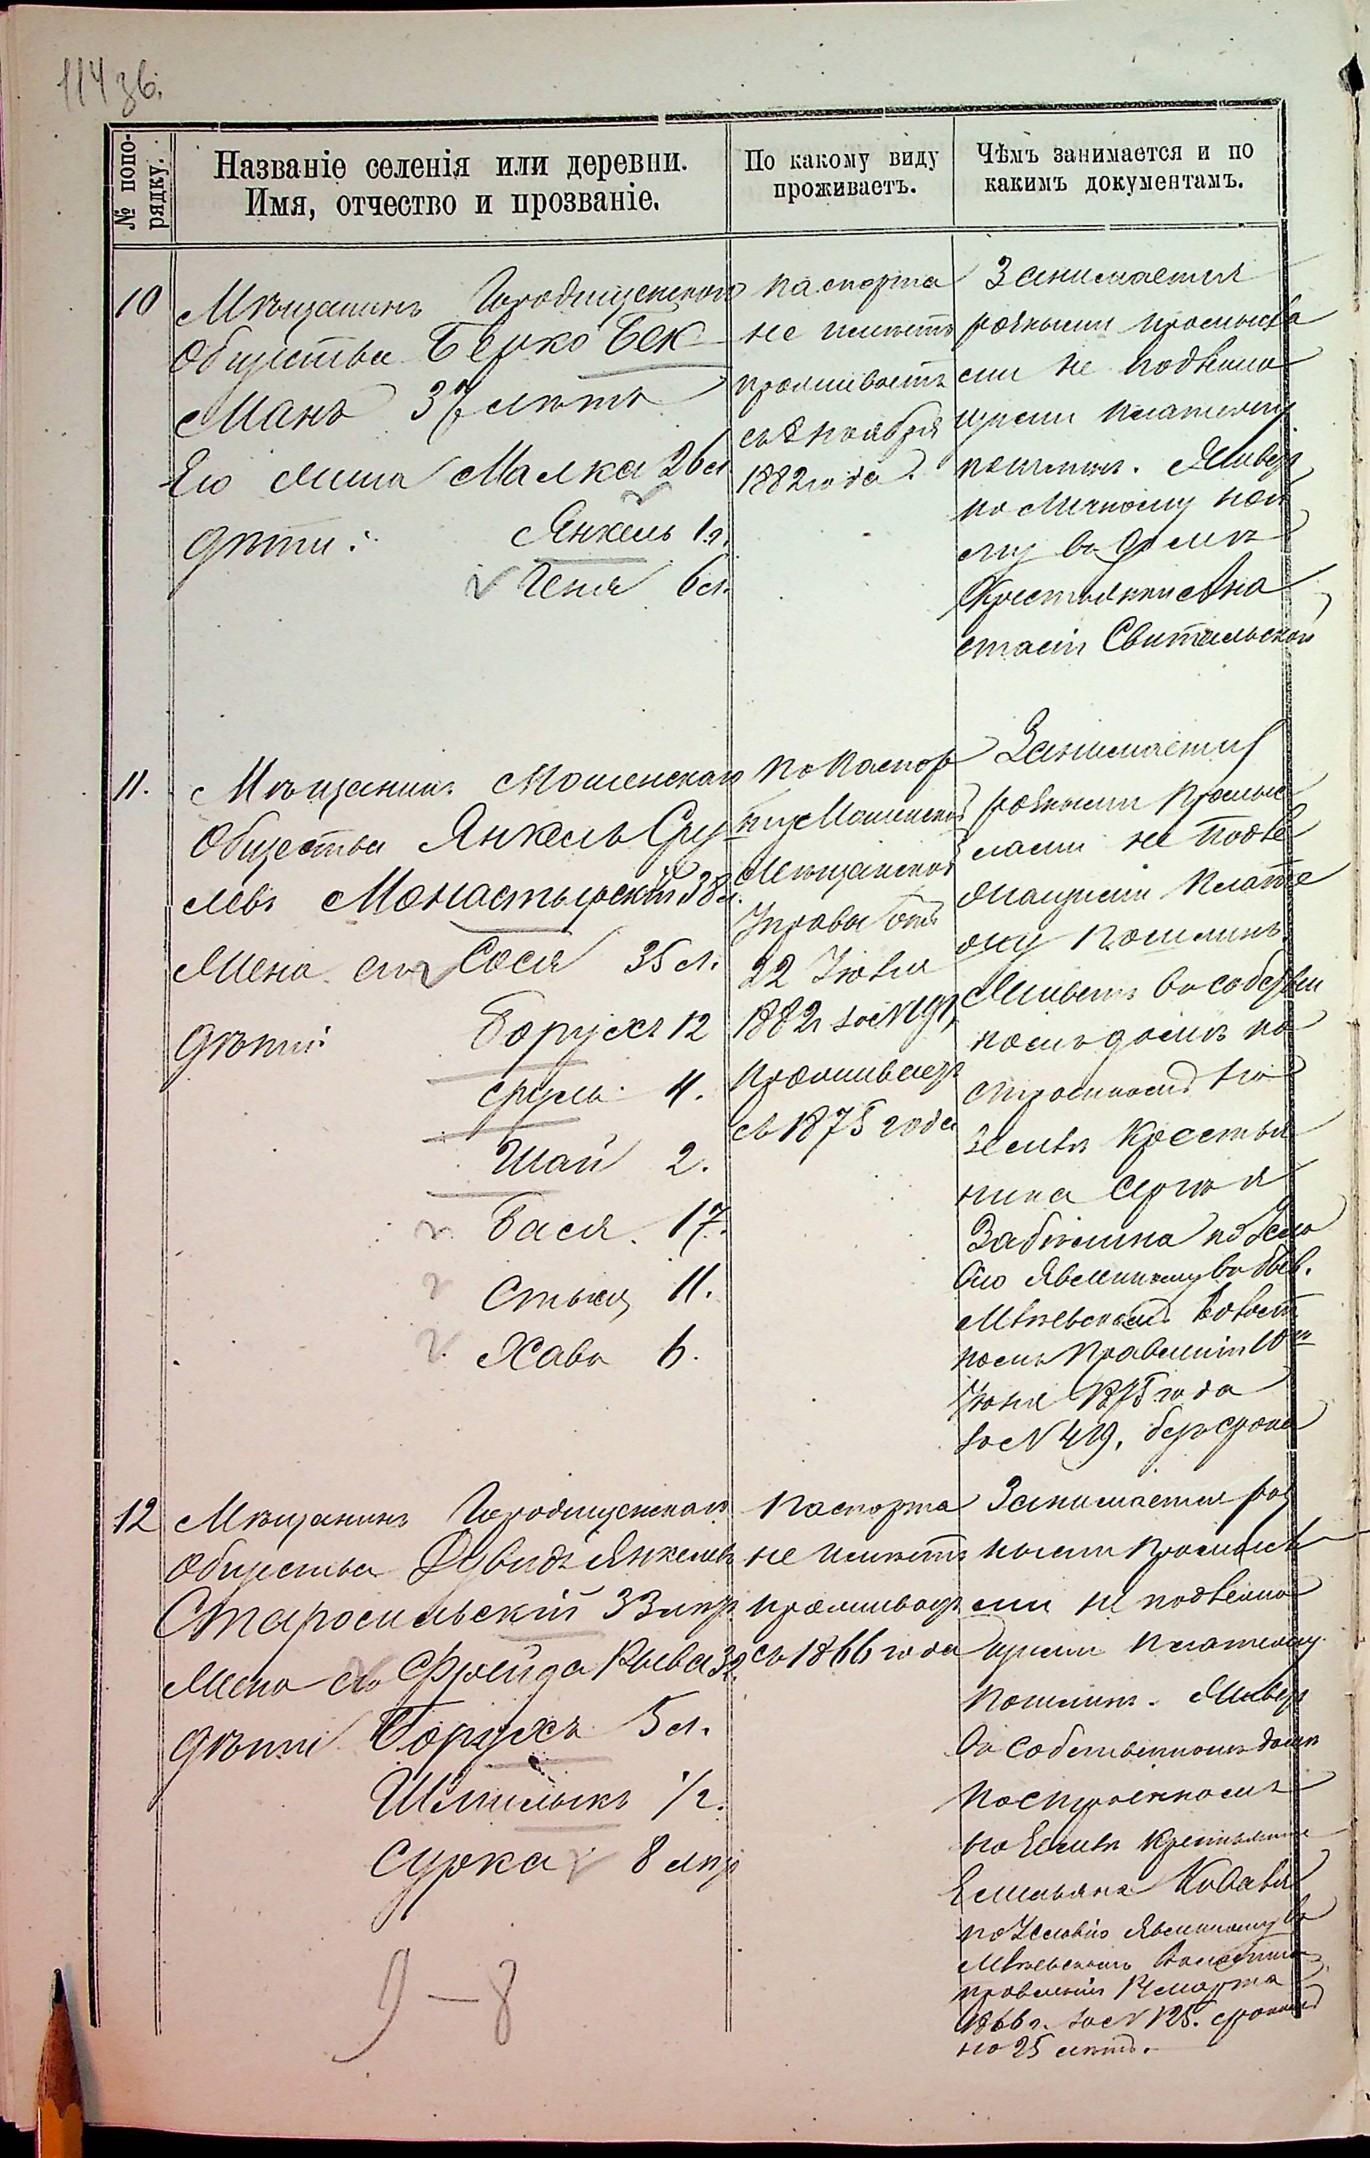 114 зв.
№ попо-
рядку.
Названіе селенія или деревни.
Имя, отчество и прозваніе.
По какому виду
проживаетъ.
Чѣмъ занимается и по
какимъ документамъ.
10
Мѣщанинъ Городищенскаго
Общества Берко Бек
манъ 37 лѣтъ
Его жина Малка 26 л.
дѣти: Янкель 1 г.
Геня 6 л.
паспорта
не имѣетъ
проживаетъ
съ 8 ноября
1882 года.
Занимается
разными промысла
ми не подлежа
щими платежу
пошлинъ. Живетъ
по личному най
му въ домѣ
Крестьянки Ана
стасіи Свитальской
11.
Мѣщанинъ Мошенскаго
Общества Янкель Сру
левъ Монастырскій 38 л.
Жена его Сося 35 л.
дѣти: Борухъ 12
Сруль 4.
Шая 2.
Бася 17.
Стыся 11.
Хава 6.
По паспор
ту Мошенской
Мѣщанской
Управы отъ
22 Іюля
1882 г за №
проживаетъ
съ 1875 года
Занимается
разными промыс
лами не подле
жащими плате
жу пошлинъ.
Живетъ въ собствен
номъ домѣ по
строенномъ на
землѣ Крестья
нина Сергѣя
по усло
вію явленному въ
Млѣевскомъ Волост
номъ Правленіи 10го
Іюня 1875 года
за № 419, безъ срока
12
Мѣщанинъ Городищенскаго
Общества Дувидъ Янкелевъ
Старосельскій 33 лѣтъ
Жена его Фрейда Рыва 32.
дѣти Борухъ 5 л.
Шмилыкъ 1/2.
Сурка 8 лѣтъ
Паспорта
не имѣетъ
проживаетъ
съ 1866 года
Занимается раз
ными промысла
ми не подлежа
щими платежу
пошлинъ. Живетъ
въ собственномъ домѣ
построенномъ
на землѣ Крестьянина
Емельяна Коваля
по условію явленному въ
Млѣевскомъ Волостномъ
правленіи 14 марта
1866 г. за № 125. срокомъ
на 25 лѣтъ.
9 – 8